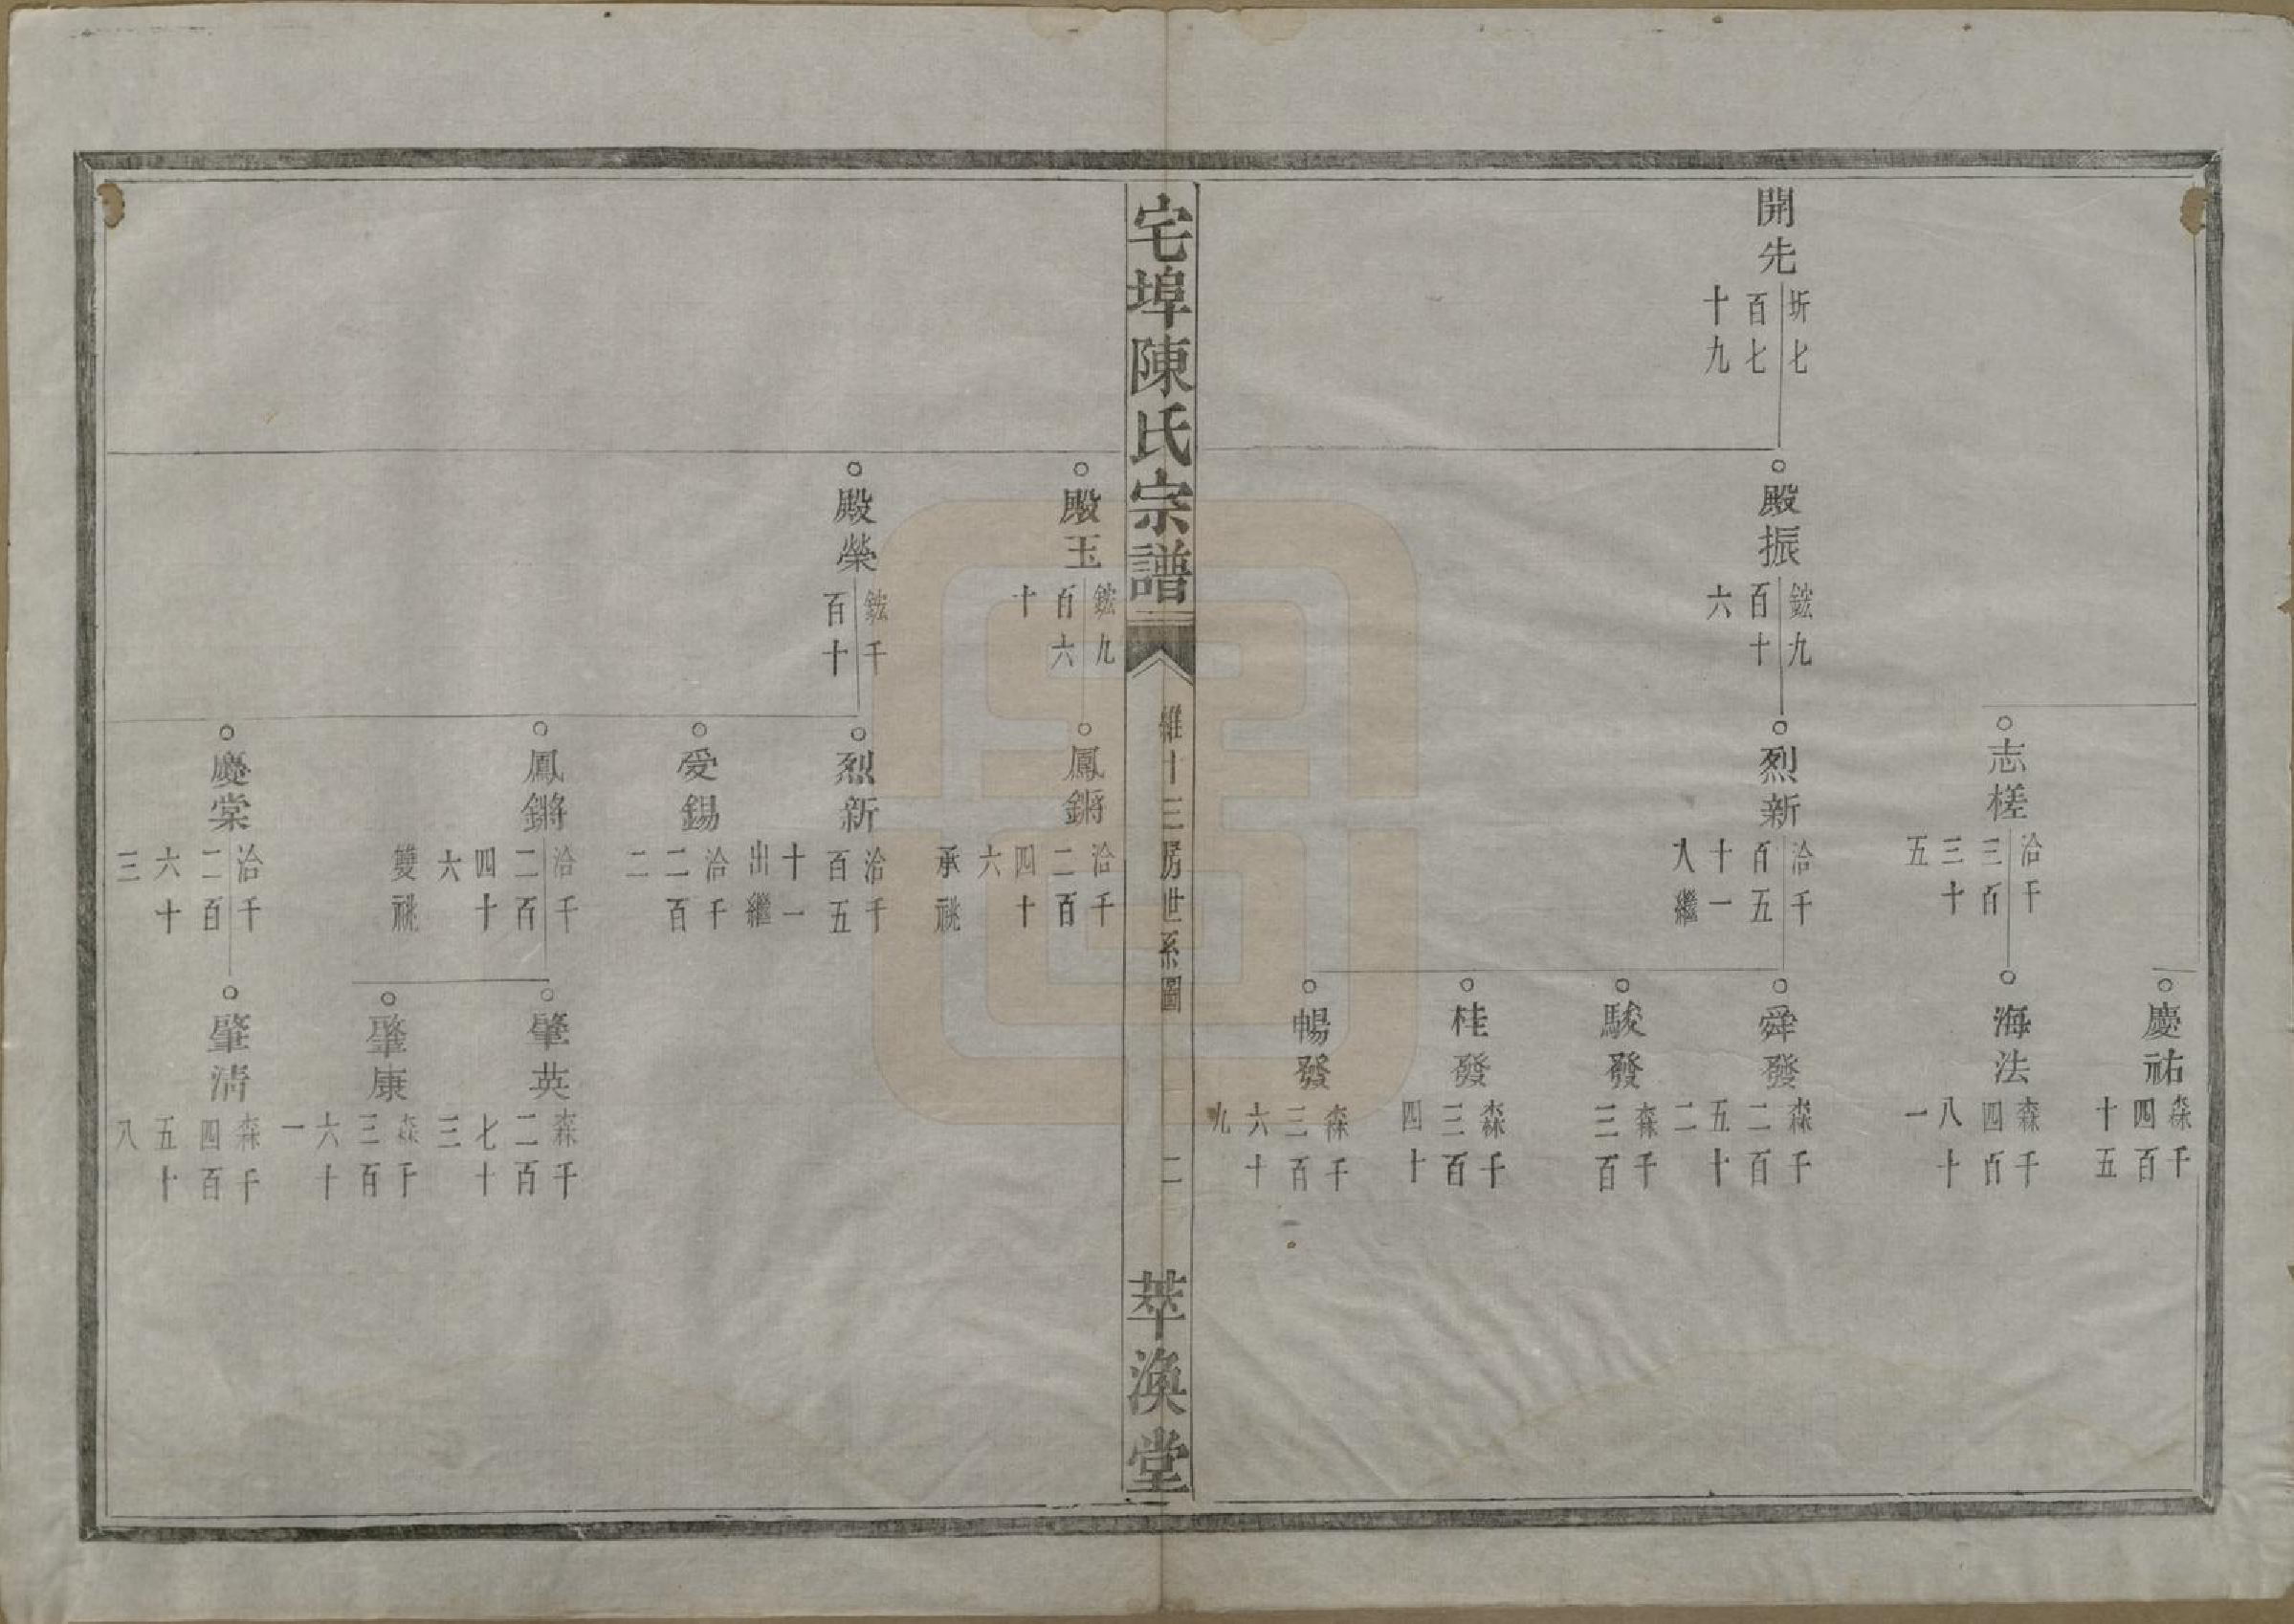 慶祐 森千四百十五
志槎 洽千三百三十五
海法 森千四百八十一
開先 圻七百七十九
殿振 鋐九百十六
烈新 洽千百五十一入繼
舜發 森千二百五十二
駿發 森千三百
桂發 森千三百四十
暢發 森千三百六十九
宅埠陳氏宗譜
維十三房世系圖
二
萃渙堂
殿玉 鋐九百六十
鳳鏘 洽千二百四十六承祧
殿榮 鋐千百十
烈新 洽千百五十一出繼
受錫 洽千二百二
鳳鏘 洽千二百四十六雙祧
肇英 森千二百七十三
肇康 森千三百六十一
慶棠 洽千二百六十三
肇清 森千四百五十八